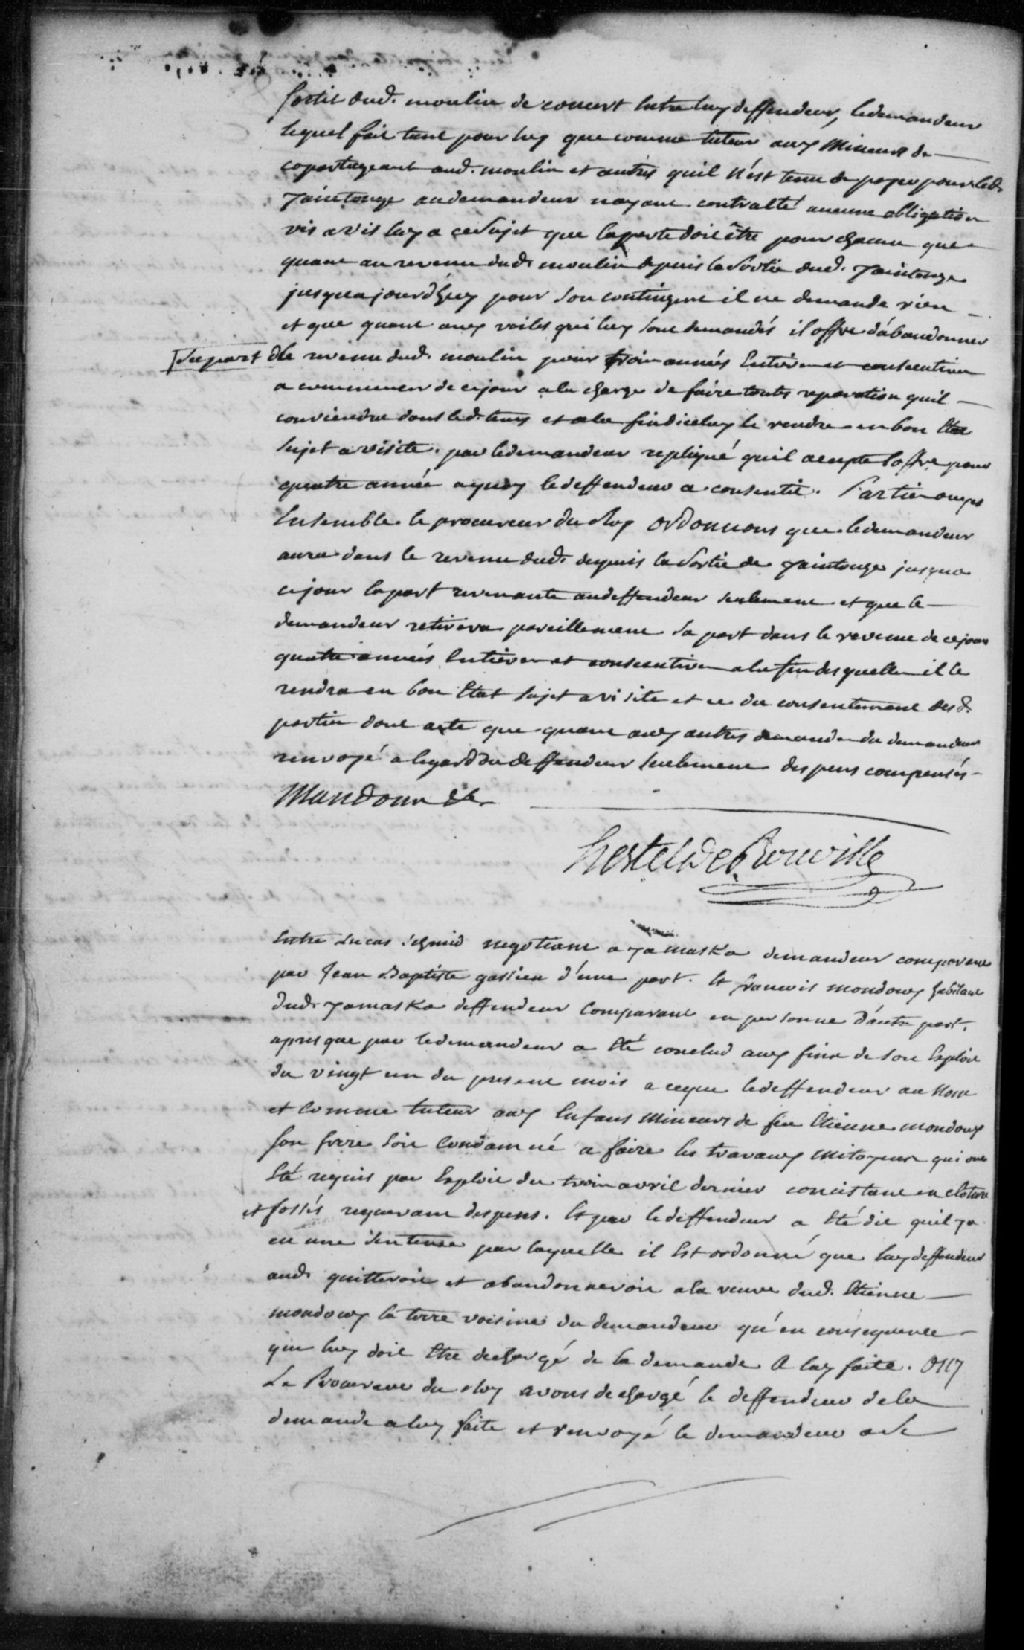 sortit dud. moulin de concert entre luy deffendeur, ledemandeur
lequel fait tant pour luy que comme tuteur aux Mineurs de
copartageant aud. moulin et autres quil n'est tenu de payer pour led.
Jaintonge audemandeur nayant contralté aucune obligation
vis avis luy a ce Sujet que laperte doit être pour chacun que
quant au revenu dud. moulin depuis la Sortie dud. Jaintonge
jusqua jourdhuy pour Son contingent il ne demande rien
et que quant aux voiles qui luy sont demandés il offre d'abandonner
Sapart d le revenu dud. moulin pour trois années Entieres et consecutives
a commencer de cejour a la charge de faire toutes reparation quil
conviendra dans led. tems et ala fin diceluy le rendre en bon Etat
Sujet a visite. par ledemandeur repliqué quil accepte loffre pour
quatre année aquoy ledeffendeur a consentie. Parties ouyes
Ensemble le procureur du Roy ordonnons que ledemandeur
aura dans le revenu dud. depuis la Sortie de Jaintonge jusqua
cejour lapart revenante audeffendeur Seulement et que le
demandeur retirera pareillement Sa part dans le revenu de cejour
quatre années Entieres et consecutives ala fin desquelles il le
rendra en bon Etat Sujet a visite et ce du consentement desd.
parties dont acte que quant aux autres demandes du demandeur
renvoyé a legard du deffendeur Seulement depens compensés
Mandons &c.
hertel De Rouville
Entre Lucas Schmid negotiant a yamaska demandeur comparant
par Jean Baptiste gatien d'une part. Et francois mondoux habitant
dud. yamaska deffendeur Comparant en personne D'autre part.
apres que par ledemandeur a Eté conclud aux fins de son Exploit
du vingt un du present mois a ceque ledeffendeur au Nom
et Comme tuteur aux Enfans Mineurs de feu Etienne mondoux
Son frere Soit Condamné a faire les travaux Mitoyens qui ont
Eté requis par Exploit du trois avril dernier concistant en cloture
et fossés requerant depens. Et par le deffendeur a Eté dit quil ya
eu une Sentence par laquelle il Est ordonné que luy deffendeur
aud. quitteroit et abandonneroit ala veuve dud. Etienne
mondoux la terre voisine du demandeur qu'en consequence
que luy doit Etre dechargé de la demande a luy faite. Ouy
Le Procureur du Roy avons dechargé le deffendeur de la
demande a luy faite et renvoyé le demandeur